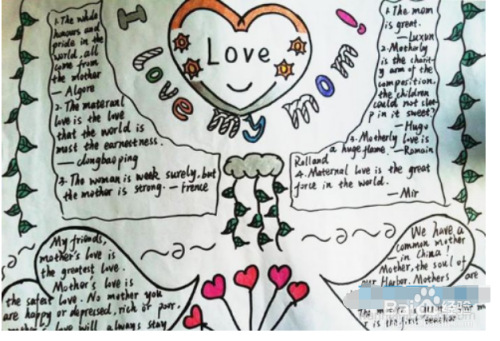 1. The whole
honours and
pride in the
world, all
come from
the mother
— Algore
2. The maternal
love is the love
that the world is
must the earnestness.
3. The woman is weak surely, but
the mother is strong. — Frence
I love my mom!
Love
1. The mom
is great.
— Luxun
2. Motherly
is the charit
y arm of the
composition.
the children
could not slee
p in it sweet?
— Hugo
4. Motherly love is
a huge flame. — Romain
Rolland
4. Maternal love is the great
force in the world.
— Mir
My friends,
mother's love is
the greatest love.
Mother's love is
the safest love. No mother you
are happy or depressed, rich or poor,
love will always stay
We have a
common mother
— in China!
Mother, the soul of
our Harbor. Mothers are
r is the first teacher
Baidu 经验